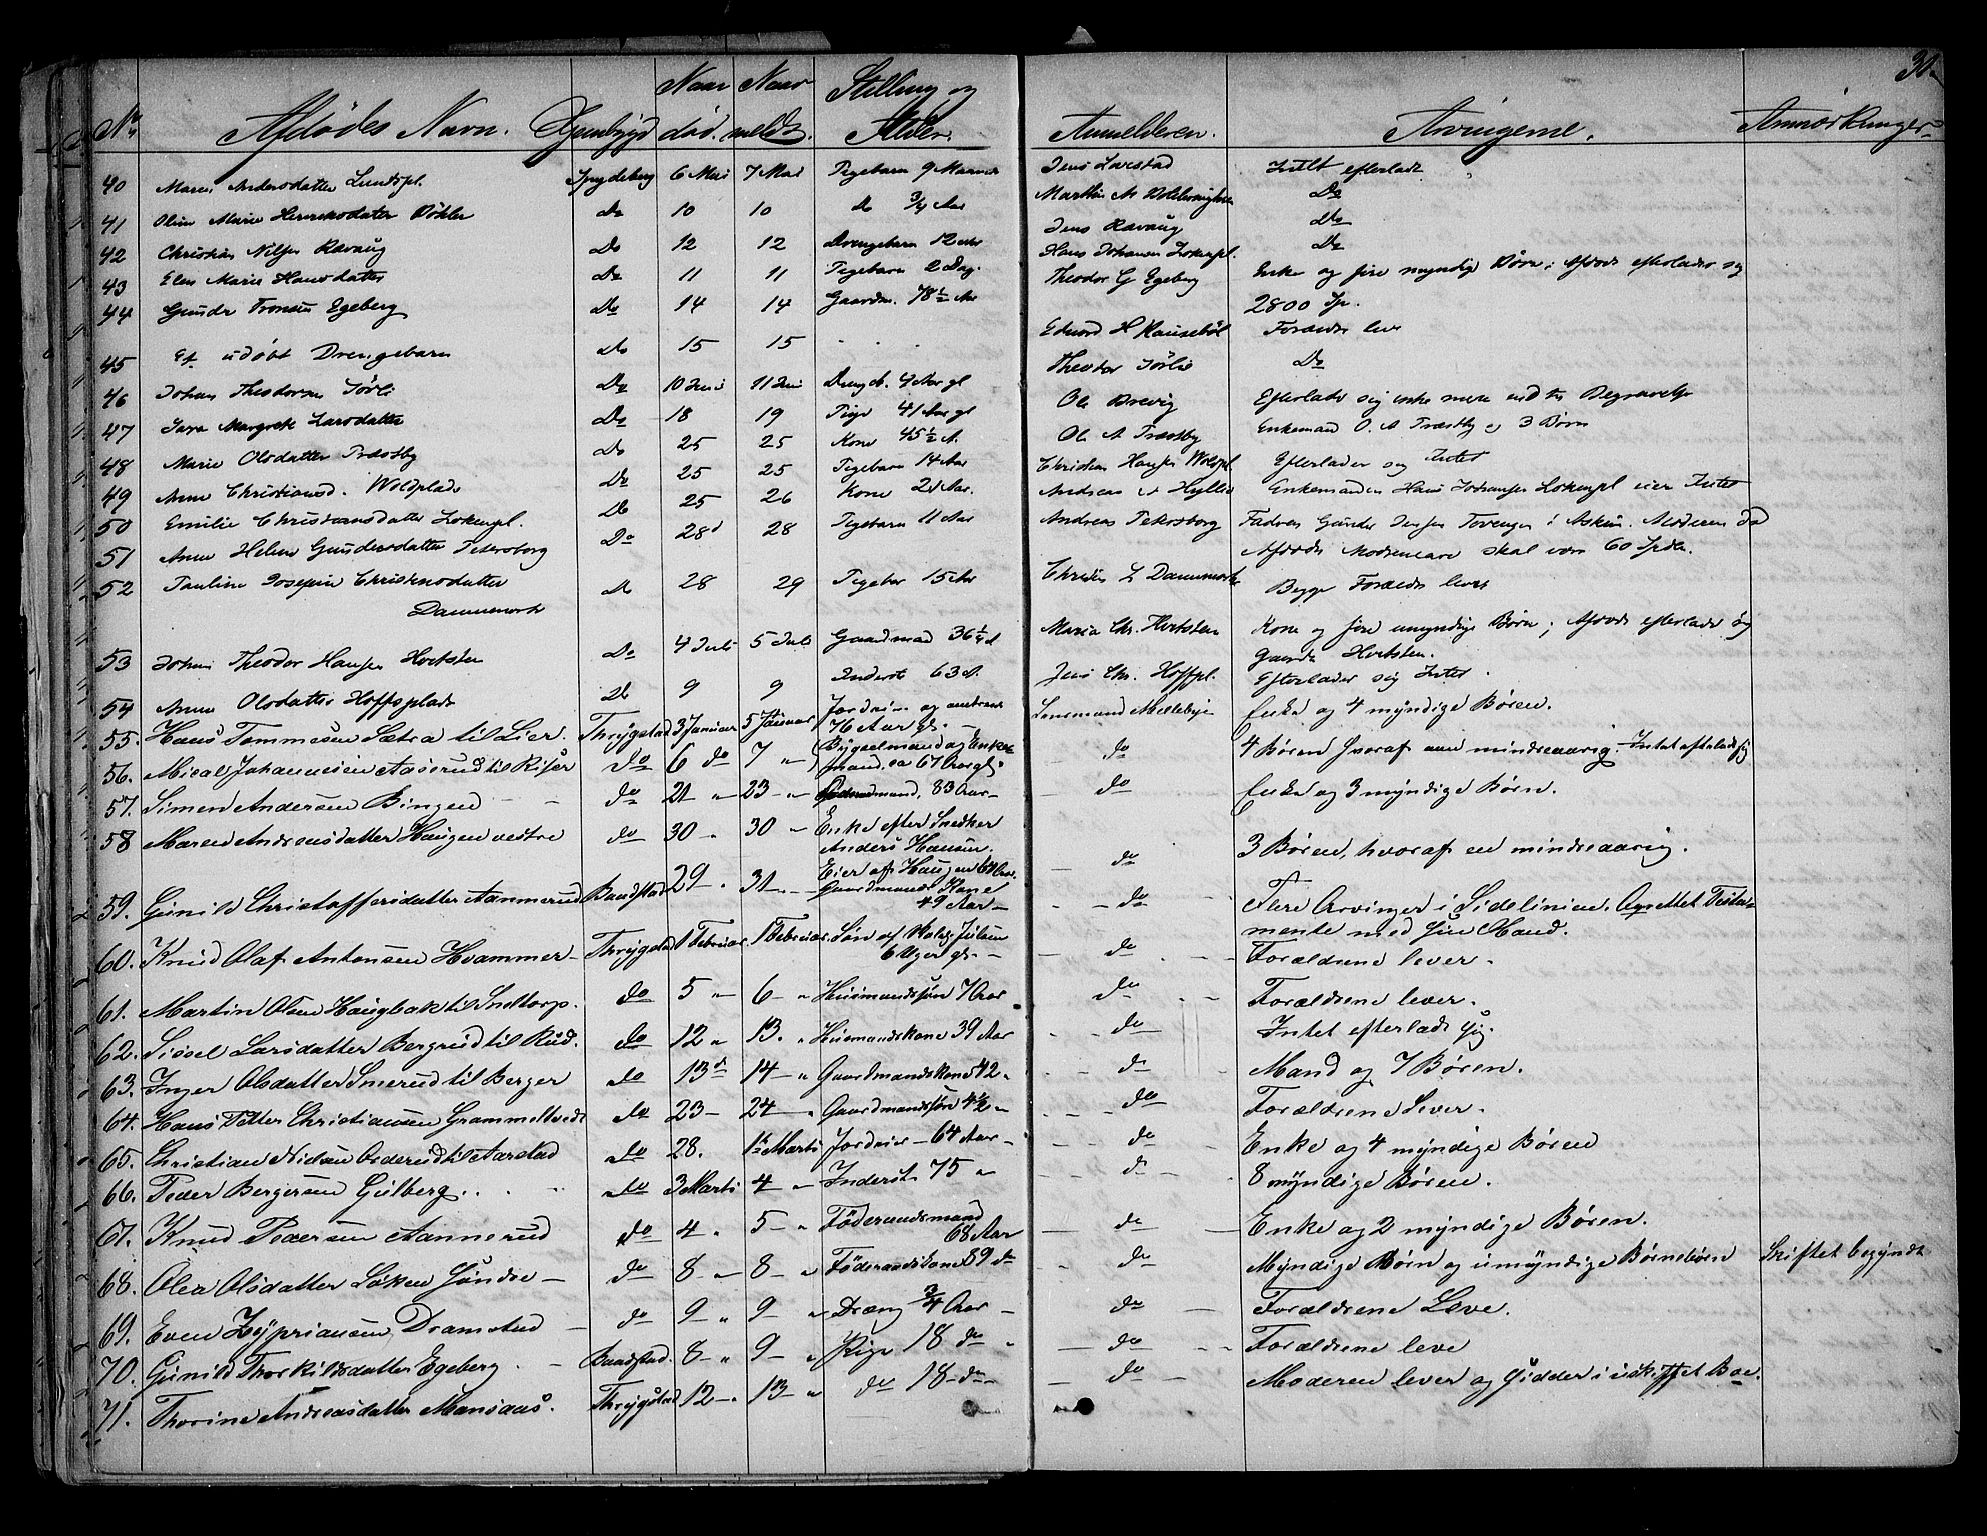 30.
No Afdødes Navn. Hjembygd Naar død. Naar meldt. Stilling og Alder. Anmelderen. Arvingerne. Anmærkninger
40 Maren Andersdatter Lundspl. Spydeberg 6 Mai 7 Mai Pigebarn 9 Maaned Jens Lovestad Intet efterladt
41 Oline Marie Do 10 10 Do 3/4 Aar Marthin A Do
42 Christian Nilsen Ravaug Do 12 12 Drengebarn 12 Jens Ravaug Do
43 Elen Marie Hansdatter Do 11 11 Pigebarn 2 Dag. Hans Johansen Lökenpl. Do
44 Gunder Tronsen Egeberg Do 14 14 Gaardm. 78 1/2 Aar Theodor G Egeberg Enke og fire myndige Børn; Afdøde efterlader sig
2800 Sp.
45 Et udøbt Drengebarn Do 15 15 Edvard H Forældre leve
46 Johan Theodorsen Sörli Do 10 Juni 11 Juni Drengb. 4 Aar gl Theodor Sörlie Do
47 Sara Margrete Larsdatter Do 18 19 Pige 41 Aar gl Ole Brevig Efterlader sig ikke mere end til Begravelse
48 Marie Olsdatter Præstby Do 25 25 Kone 45 1/2 A. Ol. A Præstby Enkemand O. A Præstby og 3 Børn
49 Anne Christiansd. Woldplads Do 25 25 Pigebarn 14 Aar Christian Hansen Woldpl Efterlader sig Intet
50 Emilie Christiansdatter Lökenpl. Do 25 26 Kone 21 Aar. Andreas Hyllie Enkemanden Hans Johansen Lökenpl eier Intet
51 Anne Helene Gundersdatter Petersborg Do 28d 28 Pigebarn 11 Aar Andreas Petersborg Fadren Gunder Jensen Tovengen i Askim. Moderen død
Afdødes Mødrenearv skal være 60 Spdlr.
52 Pauline Josepine Christensdatter Do 28 29 Pigebar 15 Aar Christen L Dannemark Begge Forældre lever
Dannemark
53 Johan Theodor Hansen Hvitsten Do 4 Juli 5 Juli Gaardmand 36 1/4 A Maria Chr. Hvitsten Kone og fire umyndige Børn; Afdøde efterlader sig
Gaarden Hvitsten.
54 Anne Olsdatter Hoffsplads Do 9 9 Inderst 63 A. Jens Chr. Hoffpl. Efterlader sig Intet.
55. Hans Tommesen Sætra til Lier. Thrygstad 3 Januar 5 Januar Jordeier og
76 Aar gl. Lensmand Mellebye Enke og 4 myndige Børen.
56. Mical Johannesen Aaserud til Riser do 6 do 7 " Bygselmand og Enke
mand, ca 67 Aar gl. do 4 Børen hvoraf een mindreaarig. Intet efterladt sig
57. Simen Andersen Bingen do 21 " 23 " mand, 83 Aar do Enke og 3 myndige Børn.
58 Maren Andreasdatter Haugen vestre do 30 " 30 " Enke efter Snedker
Anders Hansen.
Eier af Haugen do 3 Børen, hvoraf en mindreaarig.
59. Gunild Christoffersdatter Aannerud Baastad 29 " 31 " Gaardmands Kone
49 Aar do Flere Arvinger i Sidelinien. Oprettet Testa-
mente med sin Mand.
60. Knud Olaf Antonsen Hvammer Thrygstad 1 Februar. 1 Februar. Søn af
6 Uger gl. do Forældrene lever.
61. Martin Olsen Haugbak til Sneltorp. do 5 " 6 " Husmandssøn 7 Aar do Forældrene lever.
62. Sissel Larsdatter Bergerud til Rud. do 12 " 13. " Husmandskone 39 Aar do Intet efterladt sig.
63. Inger Olsdatter Smerud til Berger do 13d 14 " Gaardmandskone 42 " do Mand og 7 Børen.
64. Hans Petter Christiansen Grammeltvedt do 23 24 " Gaardmandssøn 4 1/2 " do Forældrene Lever.
65. Christian Nielsen Orderud til Aarstad do 28. 1te Marts Jordeier 64 Aar do Enke og 4 myndige Børen
66. Peder Bergersen Gulberg. do 3 Marts 4 " Inderst. 75 " do 8 myndige Børen.
67. Knud Pedersen Aannerud do 4 " 5 " Föderaadsmand
68 Aar do Enke og 2 myndige Børen.
68. Olea Olsdatter Løken søndre do 8 " 8 " Föderaadskone 89 do do Myndige Børn og umyndige Børnebørn Skiftet begyndt
69. Even Zyprianssen Dramstad do 9 " 9 " Dræng 3/4 Aar do Forældrene Leve.
70. Gunild Thorkildsdatter Egeberg Baastad. 8 " 9 " Pige 18 do do Forældrene leve
71. Thorine Andreasdatter Mansaas. Thrygstad 12 " 13 " do 18 do do Moderen lever og sidder i uskiftet Boe.